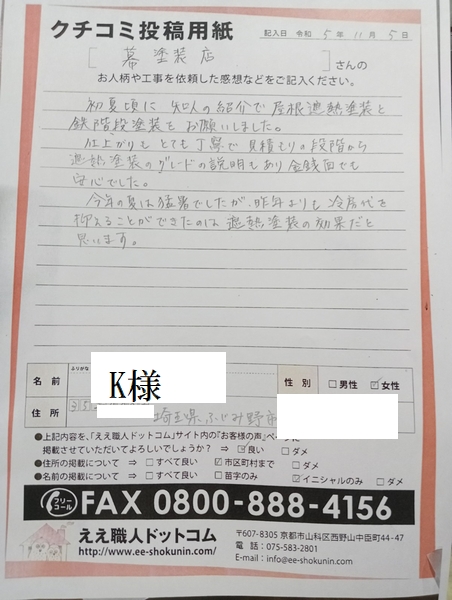 クチコミ投稿用紙
記入日 令和 5 年 11 月 5 日
[ 幕 塗装 店 ] さんの
お人柄や工事を依頼した感想などをご記入ください。
初夏頃に 知人の紹介で屋根遮熱塗装と
鉄階段塗装を お願いしました。
仕上がりも とても丁寧で 見積もりの段階から
遮熱塗装のグレードの説明もあり 金銭面でも
安心でした。
今年の夏は猛暑でしたが、昨年よりも 冷房代を
抑えることができたのは 遮熱塗装の効果だと
思います。
ふりがな
名前 K様 性別 □男性 ☑女性
住所 埼玉県ふじみ野市
●上記内容を、「ええ職人ドットコム」サイト内の『お客様の声』ページに
掲載させていただいてよろしいでしょうか? ⇒ ☑良い □ダメ
●住所の掲載について ⇒ □すべて良い ☑市区町村まで □ダメ
●名前の掲載について ⇒ □すべて良い □苗字のみ ☑イニシャルのみ □ダメ
フリーコール FAX 0800-888-4156
ええ職人ドットコム
http://www.ee-shokunin.com/
〒607-8305 京都市山科区西野山中臣町44-47
電 話：075-583-2801
E-mail：info@ee-shokunin.com